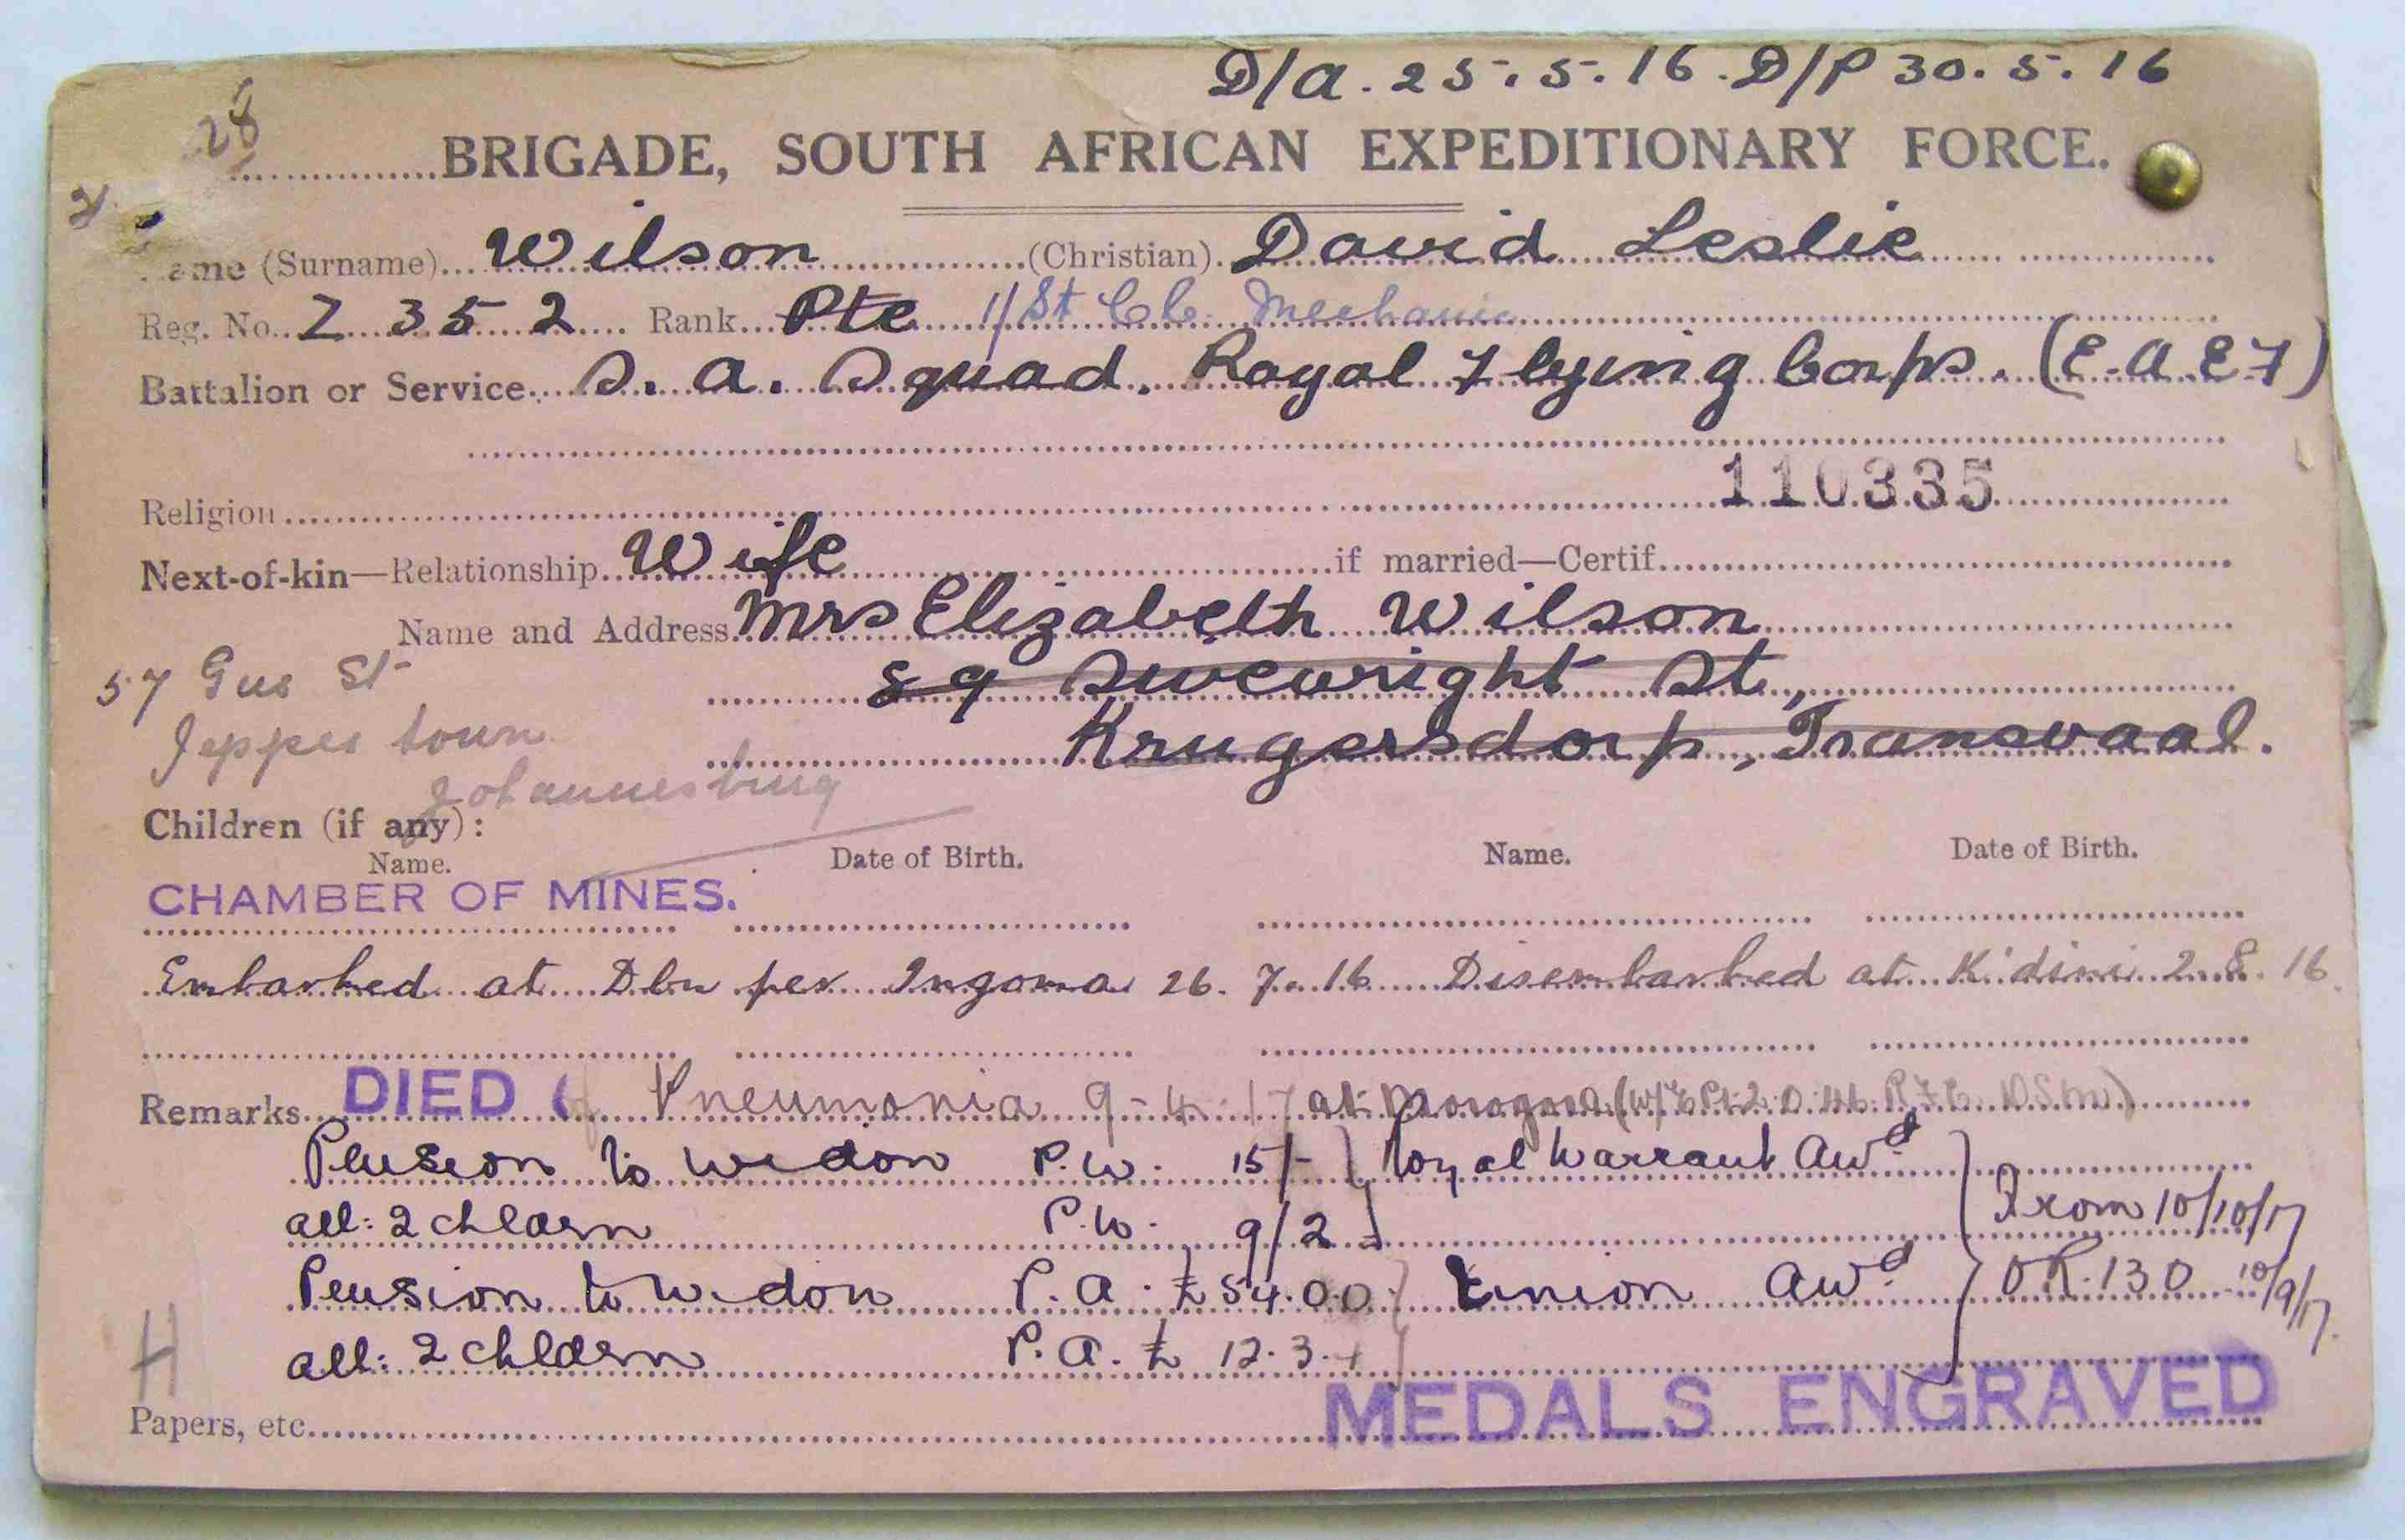 D/A. 25.5.16. D/P 30.5.16
28
BRIGADE, SOUTH AFRICAN EXPEDITIONARY FORCE.
ame (Surname) Wilson (Christian) David Leslie
Reg. No. Z 352 Rank Pte 1/St Cl. Mechanic
Battalion or Service S. A. Squad. Royal Flying Corps. (E.A.E.F)
110335
Religion
Next-of-kin—Relationship Wife if married—Certif.
Name and Address Mrs Elizabeth Wilson
57 Gus St
89 Sivewright St,
Jeppes town
Krugersdorp, Transvaal.
Johannesburg
Children (if any):
Name. Date of Birth. Name. Date of Birth.
CHAMBER OF MINES.
Embarked at Dbn per Ingoma 26.7.16 Disembarked at K'dini 2.8.16.
Remarks DIED of Pneumonia 9-4-17 at (W/E Pt 2 O 46 R.F.C.
Pension to widow P.W. 15/- } Royal Warrant Awd
all: 2 childrn P.W. 9/2 } From 10/10/17
Pension to widow P.A. £54.0.0 } Union Awd } OR.130 10/9/17.
all: 2 childrn P.A. £ 12.3.4
H
MEDALS ENGRAVED
Papers, etc.